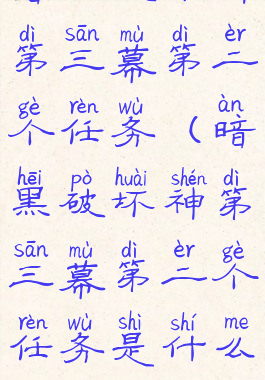 dì sān mù dì èr
第三幕第二
gè rèn wù àn
个任务（暗
hēi pò huài shén dì
黑破坏神第
sān mù dì èr gè
三幕第二个
rèn wù shì shí me
任务是什么